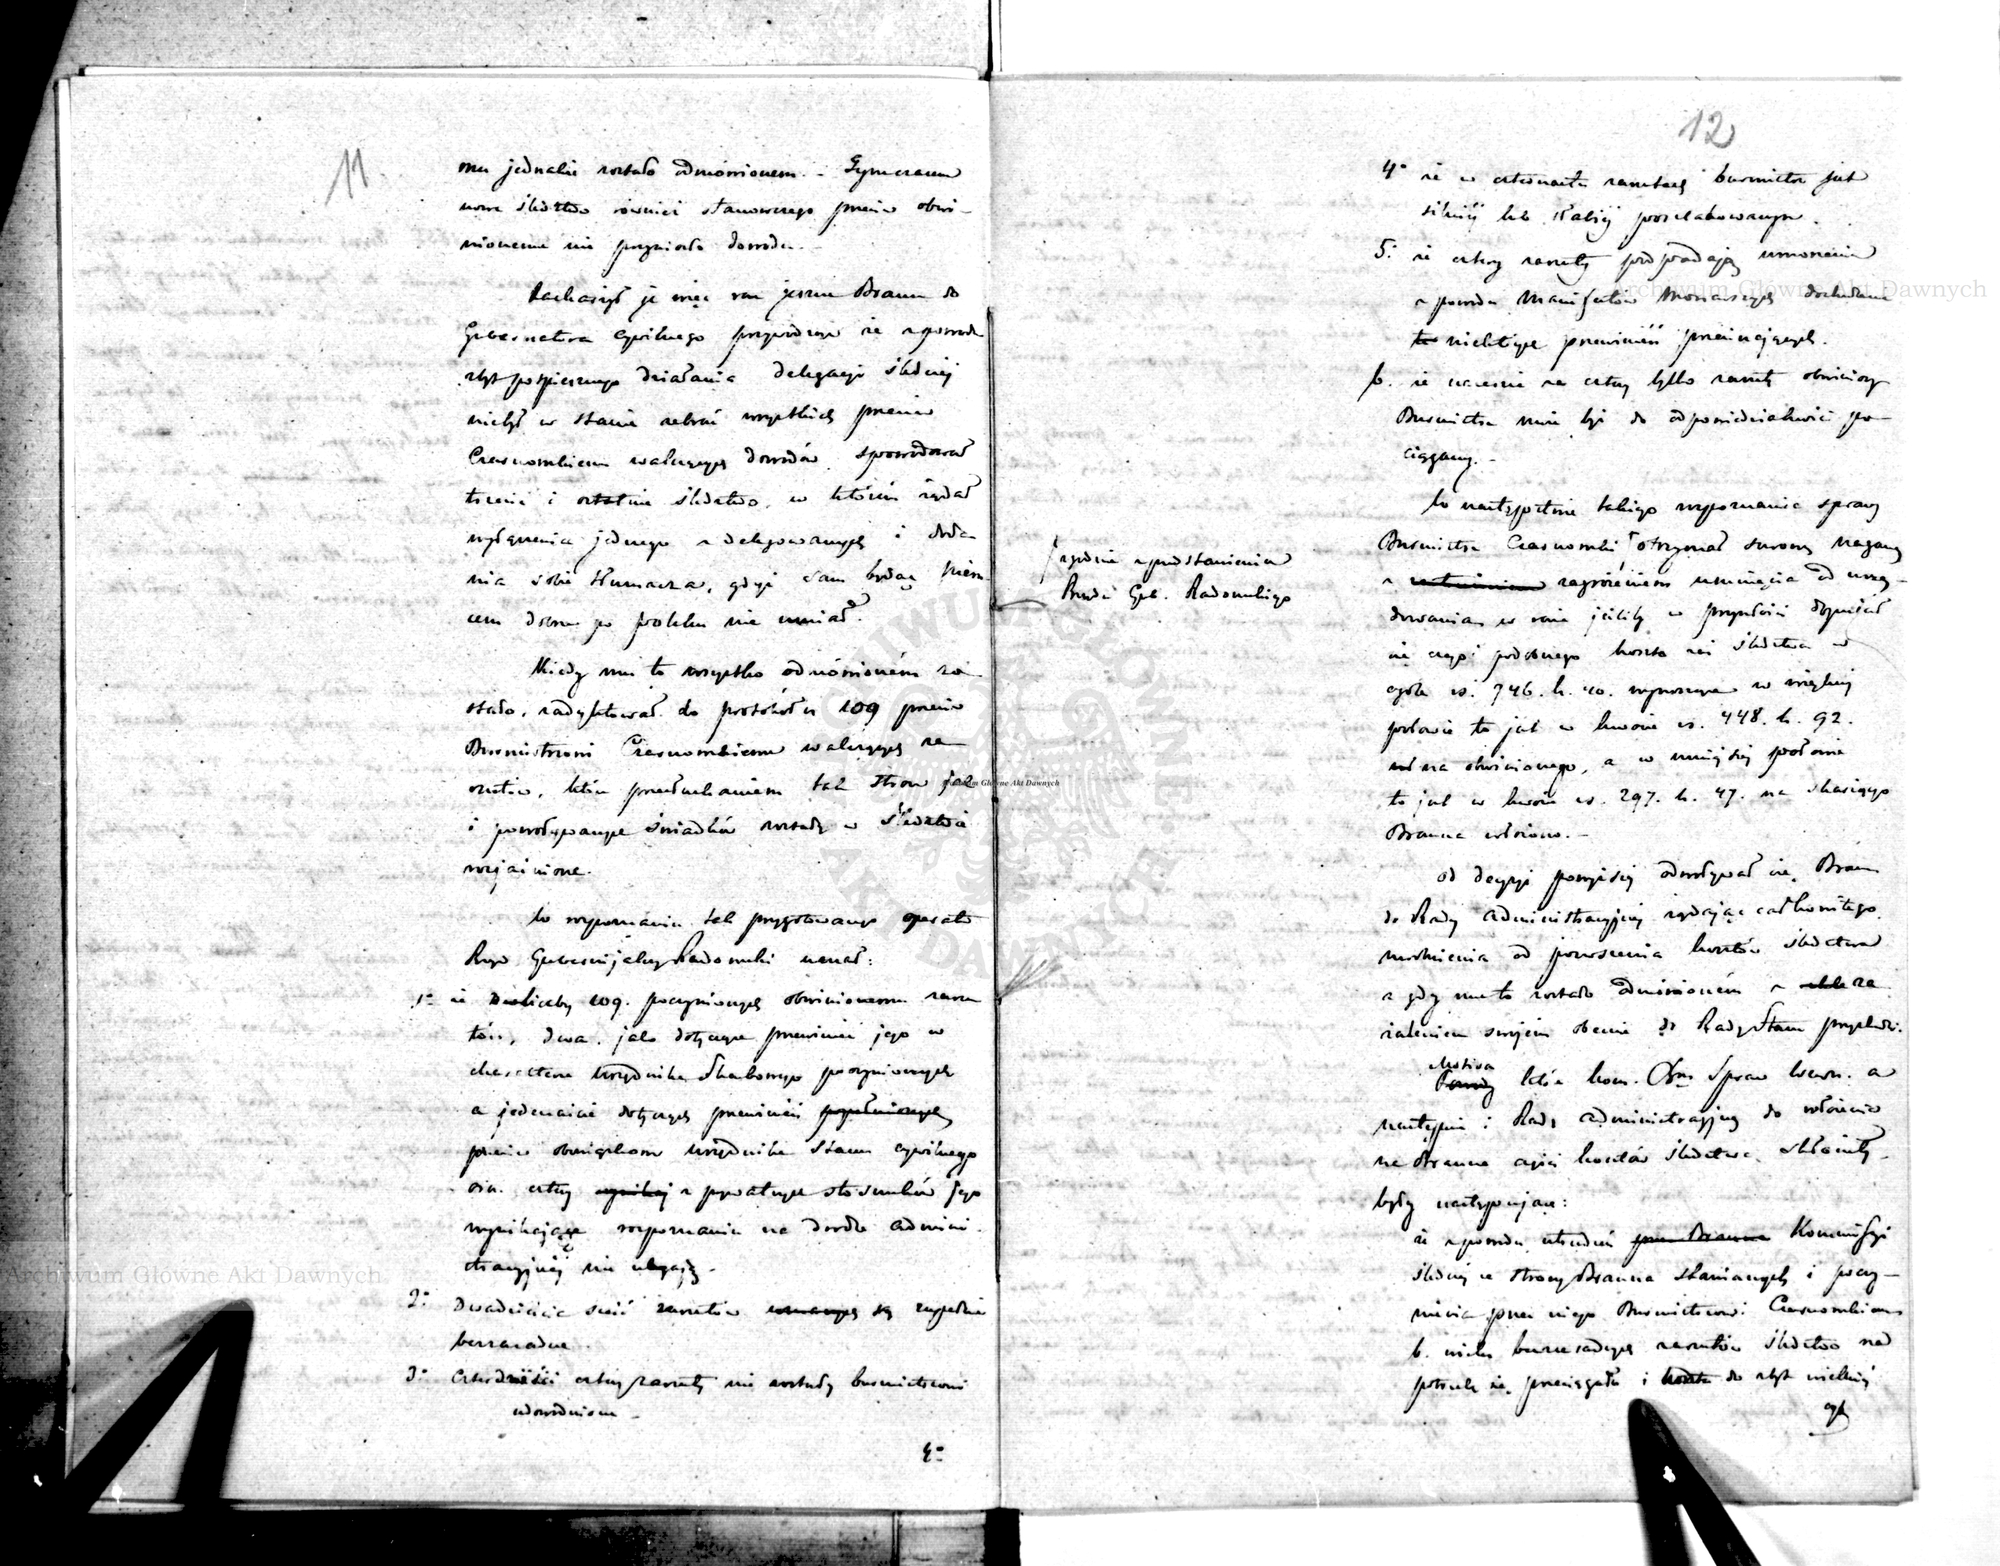 11
mu jednakże zostało odmówionem. – Tymczasem
nowe śledztwo również stanowczego przeciw obwi-
nionemu nie przyniosło dowodu. –
Zaskarżył je więc raz jeszcze Braun do
Gubernatora Cywilnego przywodząc że z powodu
zbyt pospiesznego działania delegacji śledczej
niebył w stanie zebrać wszystkich przeciw
Czarnomskiemu walczących dowodów, spowodował
trzecie i ostatnie śledztwo, w którém żądał
wyłączenia jednego z delegowanych i doda-
nia sobie tłumacza, gdyż sam będąc Niem-
cem dobrze po polsku nie umiał.
Kiedy mu to wszystko odmówioném zo-
stało, zadyktował do protokółu 109 przeciw
Burmistrzowi Czarnomskiemu walczących za-
rzutów, które przesłuchaniem tak stron jak
i powoływanych świadków zostały w śledztwie
wyjaśnione.
Po rozpoznaniu tak przygotowanego operatu
Rząd Gubernijalny Radomski uznał:
1o że z liczby 109. poczynionych obwinionemu zarzu-
tów, dwa, jako dotyczące przewinień jego w
charakterze Urzędnika Skarbowego poczynionych
a jedenaście dotyczących przewinień popełnionych
przeciw obowiązkom urzędnika stanu cywilnego
oraz cztery wynikłej z prywatnych stosunków jego
wynikające rozpoznaniu na drodze admini-
stracyjnej nie ulegają. –
2o Dwadzieścia sześć zarzutów są zupełnie
bezzasadne.
3o Czterdzieści cztery zarzuty nie zostały burmistrzowi
udowodnione –
4o
12
4o że w czternastu zarzutach burmistrz jest
silniéj lub słabiéj poszlakowanym.
5. że cztery zarzuty podpadają umorzeniu
z powodu Manifestów Monarszych dochodzenia
niektórych przewinień przecinających.
6. że wreszcie za cztery tylko zarzuty obwiniony
Burmistrz może być do odpowiedzialności po-
ciągany. –
Po nastąpieniu takiego rozpoznania sprawy
Burmistrz Czarnomski otrzymał surową naganę
z zagrożeniem usunięcia od urzę-
dowania w razie jeżeliby w przyszłości dopuścił
się czegoś podobnego koszta zaś śledztwa w
ogóle rs. 746. k. 40. wynoszące w większej
połowie to jest w kwocie rs. 448. k. 92.
na obwinionego, a w mniejszej połowie
to jest w kwocie rs. 297. k. 47. na skarżącego
Brauna włożono. –
zgodnie z przedstawieniem
Rządu Gub. Radomskiego
Od decyzji powyższej odwoływał się Braun
do Rady Administracyjnej żądając całkowitego
uwolnienia od ponoszenia kosztów śledztwa
a gdy mu to zostało odmówioném z za-
żaleniem swojém obecnie do Rady Stanu przychodzi.
Motiva
które Kom. Rz. Spraw Wewn. a
następnie i Radę Administracyjną do włożenia
na Brauna części kosztów śledztwa, skłoniły
były następujące:
że z powodu utrudzeń przez Brauna Kommissyi
śledczej ze strony Brauna stawianych i poczy-
nienia przez niego Burmistrzowi Czarnomskiemu
b. wielu bezzasadnych zarzutów śledztwo nad
potrzebę się przeciągało i koszta do zbyt wielkiej